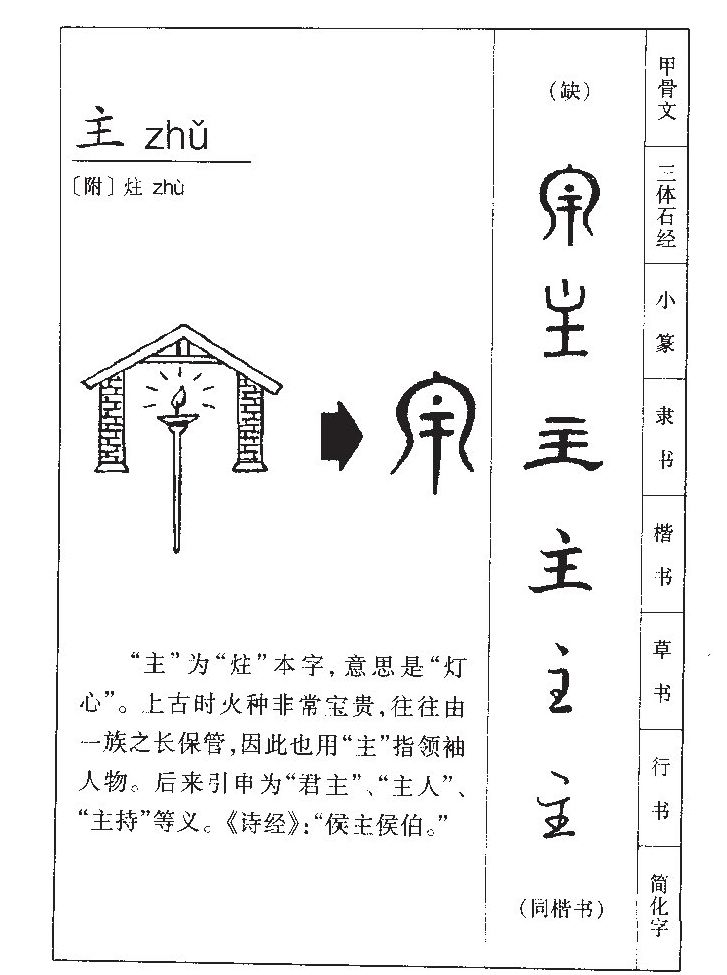 主 zhǔ
〔附〕炷 zhù
“主”为“炷”本字，意思是“灯
心”。上古时火种非常宝贵，往往由
一族之长保管，因此也用“主”指领袖
人物。后来引申为“君主”、“主人”、
“主持”等义。《诗经》：“侯主侯伯。”
（缺）
甲骨文
宔
三体石经
主
小篆
主
隶书
主
楷书
主
草书
主
行书
（同楷书）
简化字